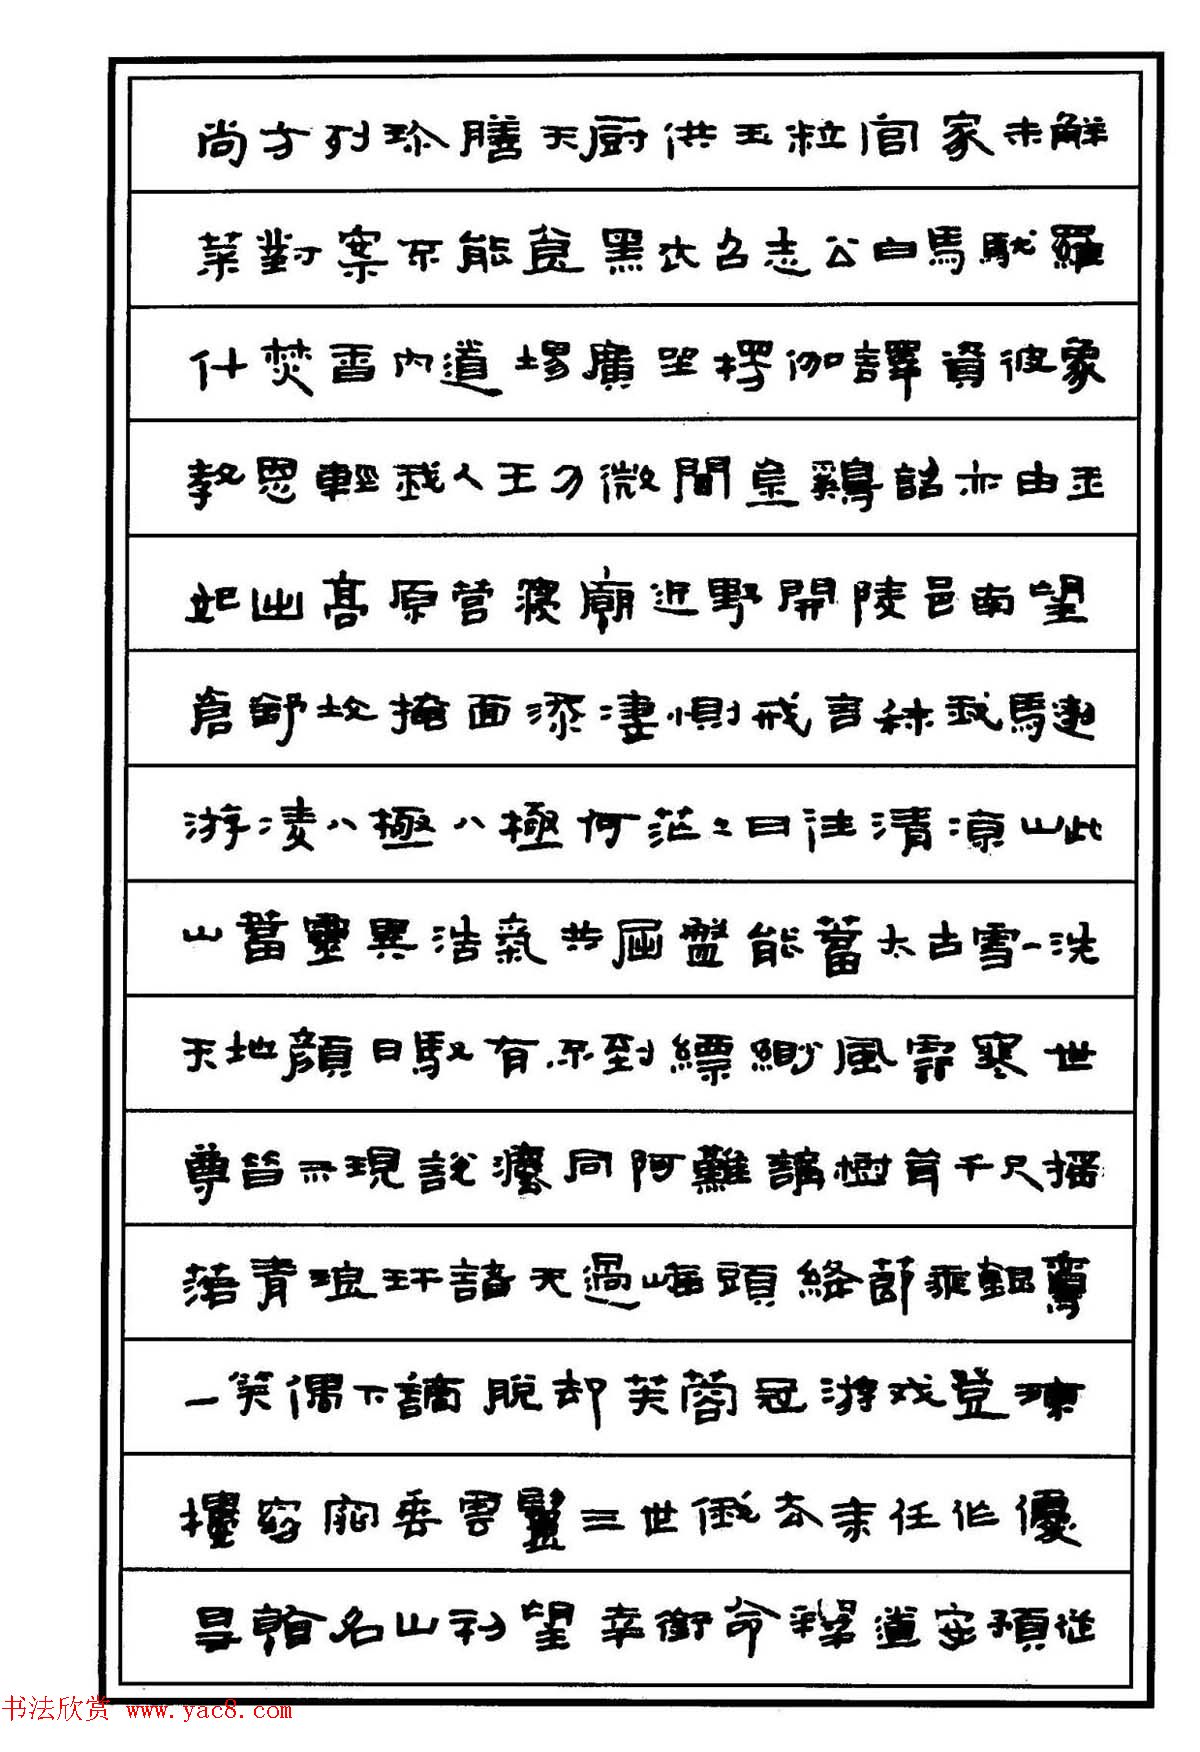 尚方列珍膳天廚供玉粒官家未解
菜對案不能食黑衣召志公白馬馱羅
什焚香內道場廣坐楞伽譯資彼象
教恩輕我人王力微聞金鷄詔亦由玉
妃出高原營寢廟近野開陵邑南望
倉舒坟掩面添淒惻戒言秣我馬遨
游凌八極八極何茫〻曰往清凉山此
山蓄靈異浩氣共屈盤能蓄太古雪一洗
天地顏日馭有不到縹緲風雲寒世
尊昔示現說法同阿難講樹聳千尺搖
落青琅玕諸天過峰頭絳節乘銀鸞
一笑偶下謫脫却芙蓉冠游戏登瓊
樓窈窕垂雲鬟三世俄去來任作優
曇看名山初望幸銜命釋道安預從
书法欣赏 www.yac8.com